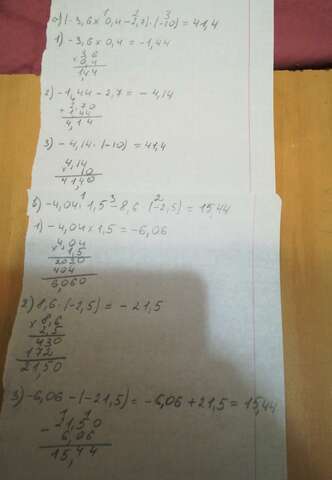 1 2 3
а) (-3,6 × 0,4 - 2,7) · (-10) = 41,4
1) -3,6 × 0,4 = -1,44
3,6
× 0,4
1,44
2) -1,44 - 2,7 = -4,14
2,70
+ 1,44
4,14
3) -4,14 · (-10) = 41,4
4,14
× 10
41,40
1 3 2
б) -4,04 · 1,5 - 8,6 · (-2,5) = 15,44
1) -4,04 × 1,5 = -6,06
× 4,04
1,5
2020
404
6,060
2) 8,6 · (-2,5) = -21,5
× 8,6
2,5
430
172
21,50
3) -6,06 - (-21,5) = -6,06 + 21,5 = 15,44
1 1
- 21,50
6,06
15,44